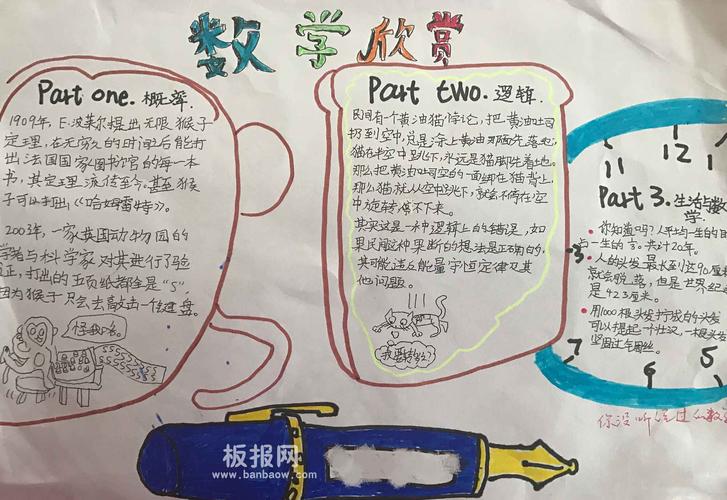 数学欣赏
Part one. 概率.
1909年, E·波莱尔提出无限猴子
定理, 在无穷久的时间后能打
出法国国家图书馆的每一本
书, 其定理流传至今, 甚至猴
子可以打出《哈姆雷特》。
2003年, 一家英国动物园的
学者与科学家对其进行了验
证, 打出的五页纸都全是“S”,
因为猴子只会去敲击一个键盘。
怪我咯。
SSSSSS
Part two. 逻辑.
民间有个黄油猫悖论, 把黄油吐司
扔到空中, 总是涂上黄油那面先落地,
猫在半空中跳下, 永远是猫脚先着地。
那么把黄油吐司空的一面绑在猫背上,
那么猫就从空中跳下, 就会不停在空
中旋转, 停不下来。
其实这是一水中逻辑上的错误, 如
果民间这种果断的想法是正确的,
其可能违反能量守恒定律及其
他问题。
我要转多久?
11
12
3
7
6
5
Part 3. 生活与数
学
你知道吗? 人平均一生的时
一生的⅓。共计20年。
人的头发最长到达90厘
就会脱落, 但是世界纪
是423厘米。
用1000根头发拧成的头发
可以提起一个壮汉, 一根头发
坚固过车圈丝。
你没听说过的数
板报网
www.banbaow.com